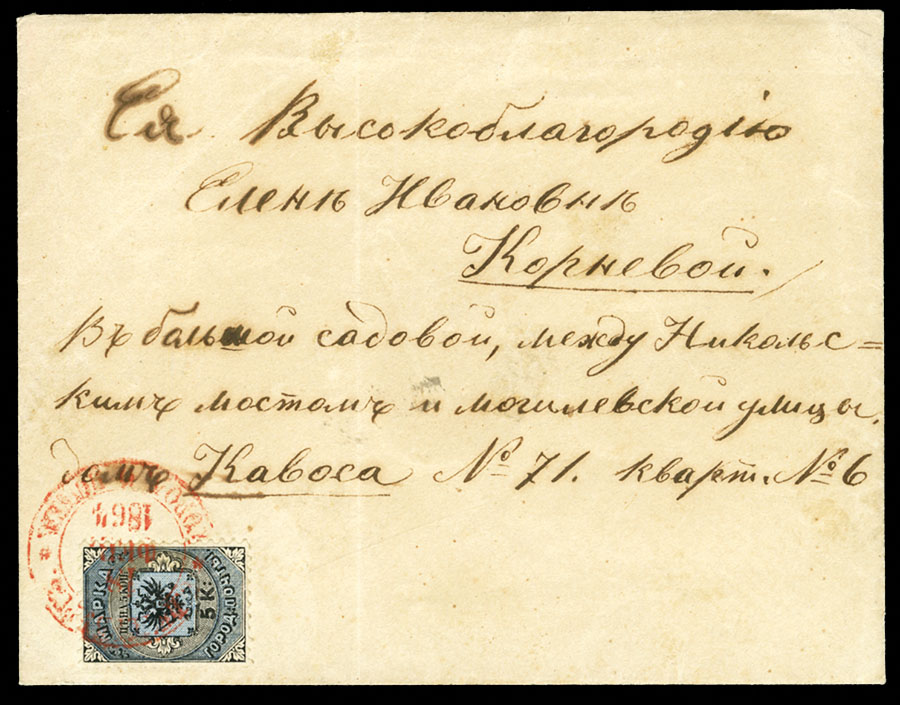 Ея Высокоблагородію
Еленѣ Ивановнѣ
Корневой.
Въ большой садовой, между Никольс=
кимъ мостомъ и могилевской улицы,
домъ Кавоса № 71. кварт. № 6
1864
МАРКА
ГОРОДСКОЙ
5 К: